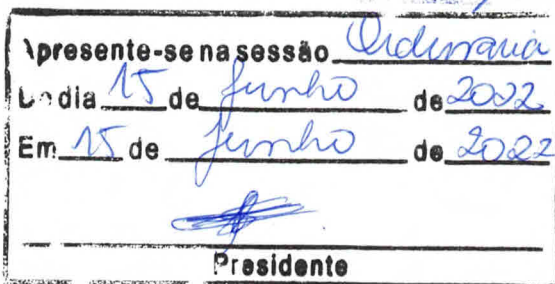 Apresente-se na sessão Ordinaria
Do dia 15 de Junho de 2022
Em 15 de Junho de 2022
Presidente